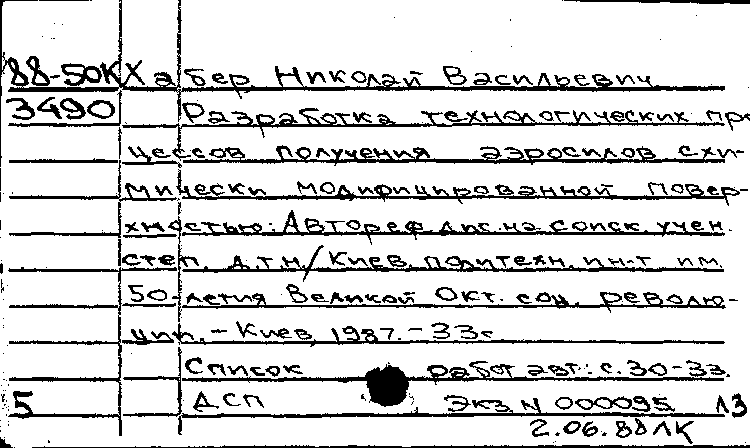 88-50К Хабер Николай Васильевич
3490 Разработка технологических про-
цессов получения аэросилов с хи-
мически модифицированной повер-
хностью: Автореф. дис. на соиск. учен.
степ. д.т.н./Киев. политехн. ин-т им.
50-летия Великой Окт. соц. револю-
ции. - Киев, 1987. - 33 с.
Список работ авт.: с. 30-33.
5 ДСП Экз. N 000095 ЛЗ
2.06.88 ЛК